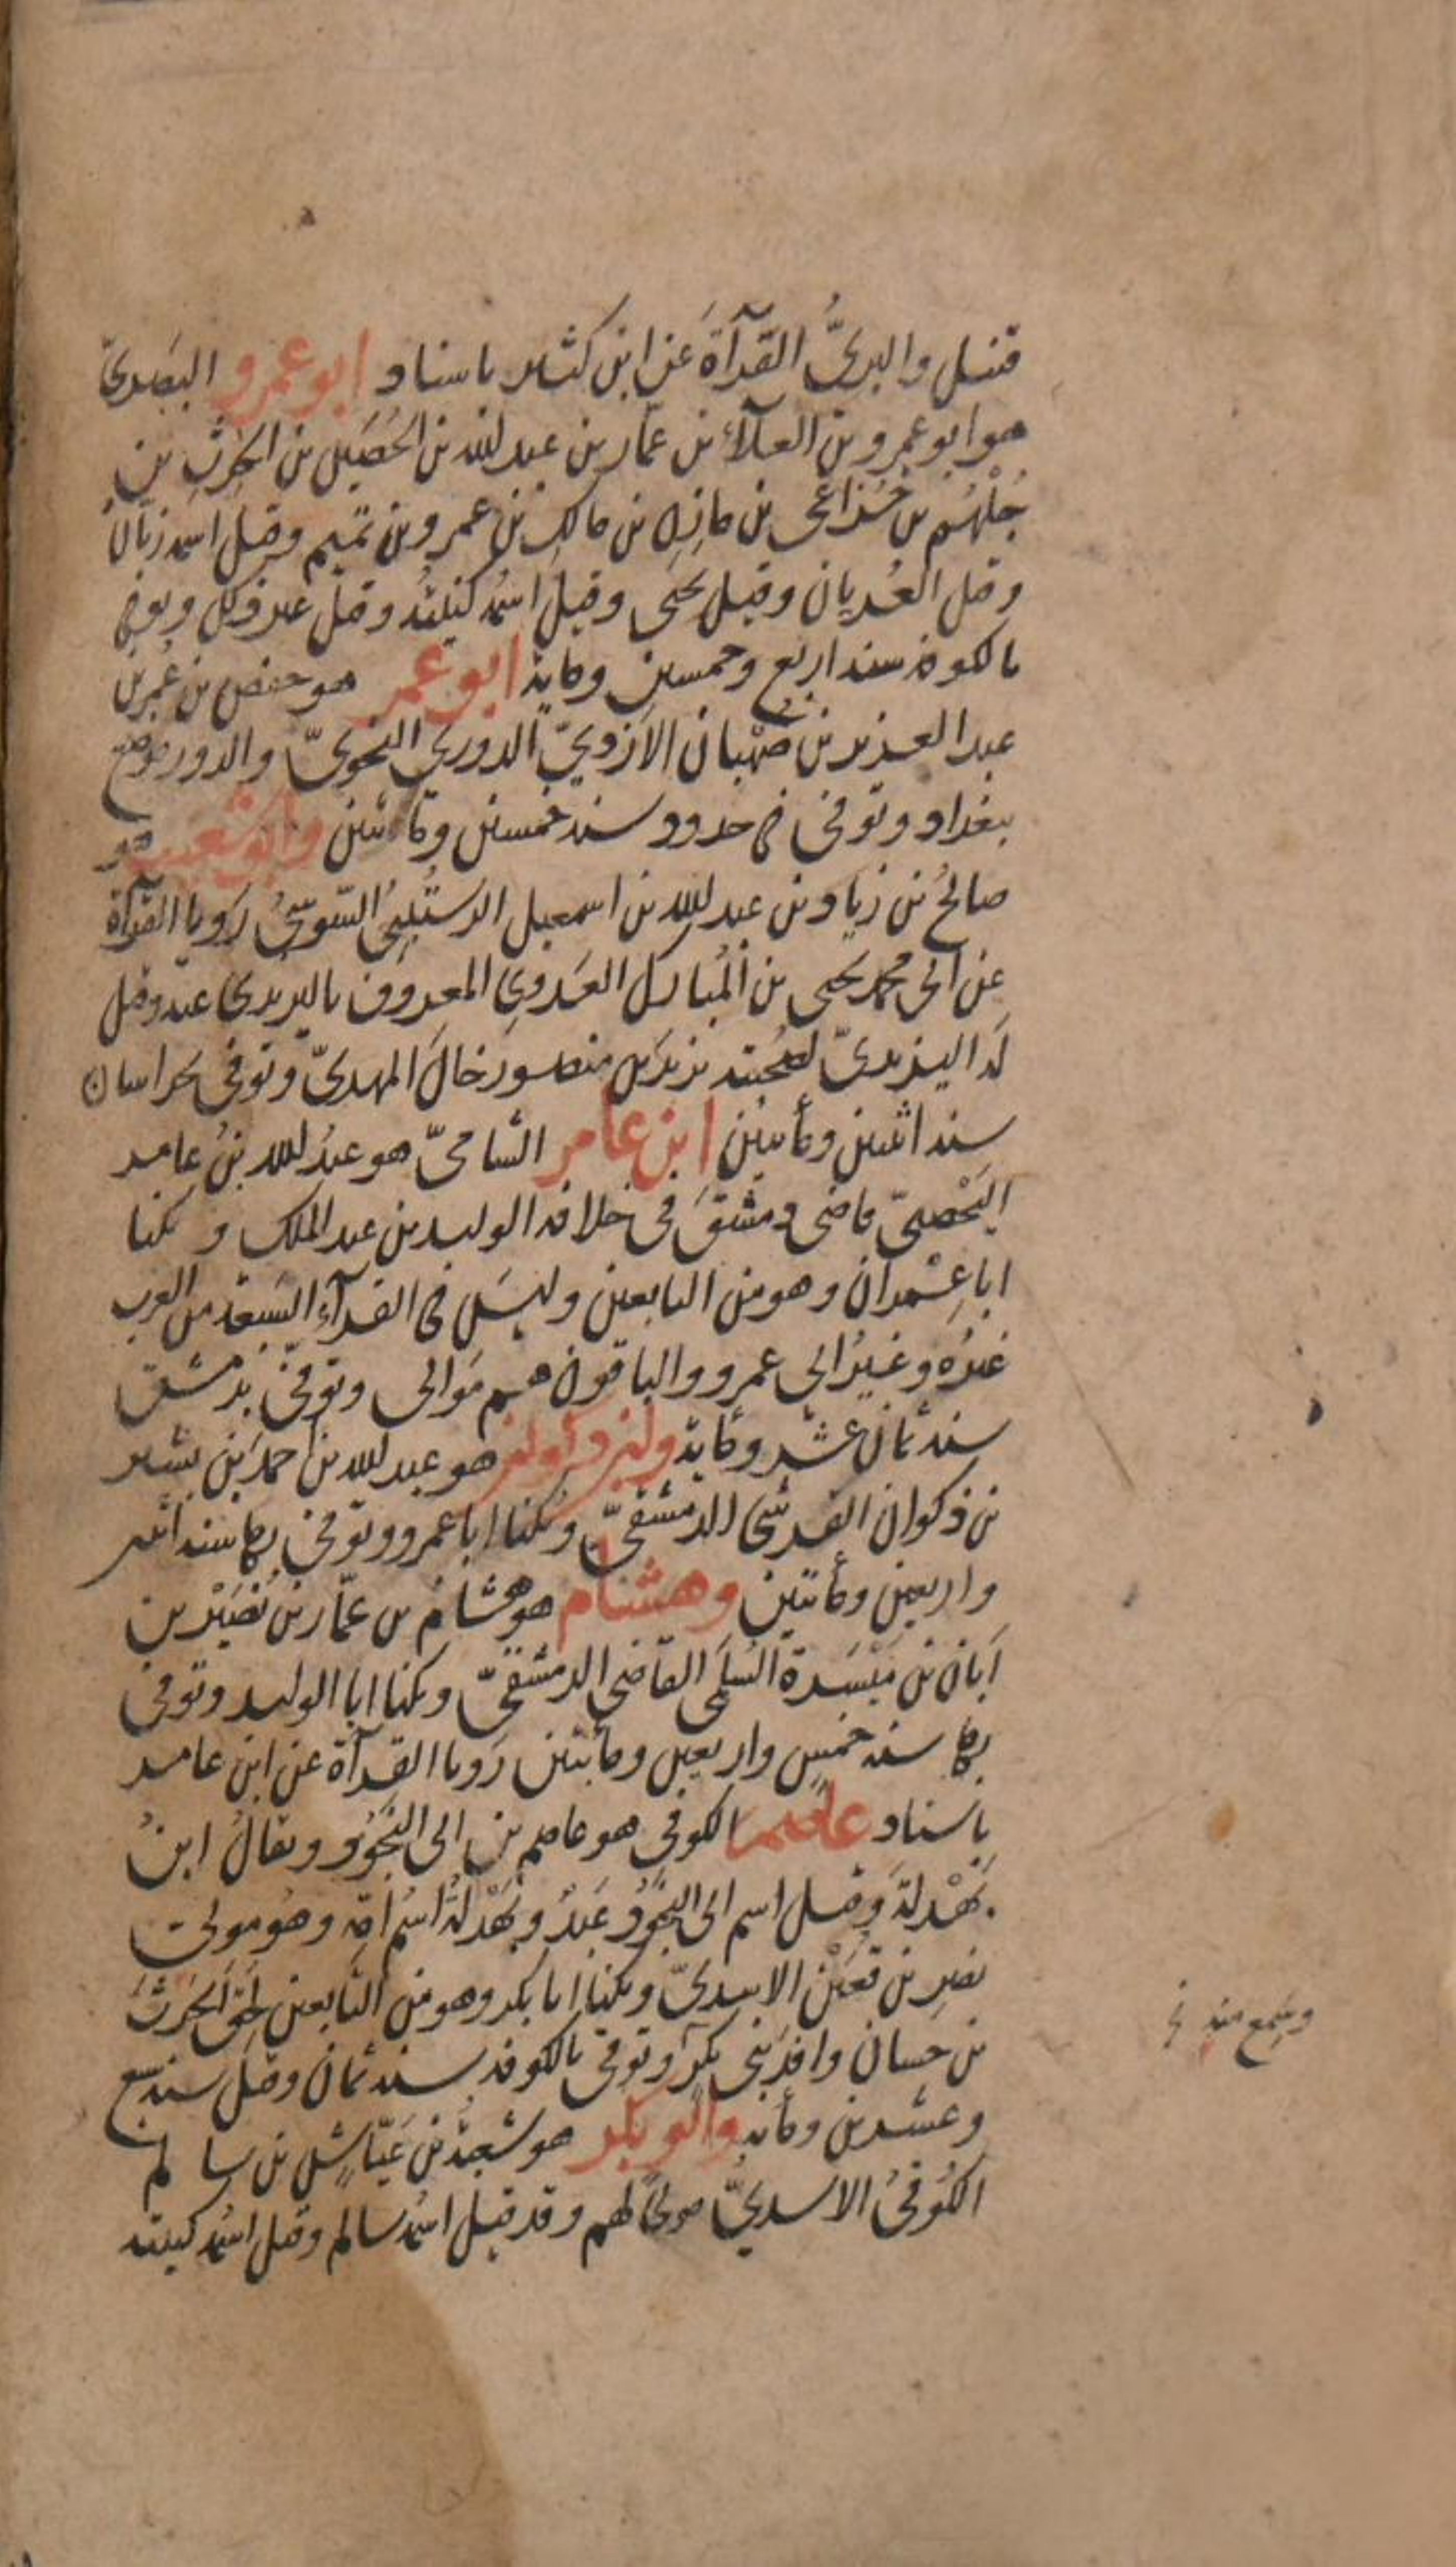 قنبل والبزيُّ القرآةَ عن ابن كثير باسناد ابو عمرو البصريّ
هو ابو عمرو بن العلآء بن عمّار بن عبد الله بن الحُصَين بن الحرث بن
جُلْهُم بن خُزاعى بن مازِنِ بن مالكِ بن عمرو بن تميم وقيل اسمه زبّان
وقيل العُريان وقيل يحيى وقيل اسمُه كنيتُه وقيل غير ذلك وتوفي
بالكوفة سنة اربع وخمسين ومايةٍ ابو عمر هو حفص بن عُمر بن
عبد العزيز بن صُهْبان الازديّ الدوريّ النحويّ والدور موضع
ببغداد وتوفى فى حدود سنة خمسين ومائتين وابو شعيب هو
صالحُ بن زياد بن عبد الله بن اسمعيل الرستُبِىّ السّوسىُّ رَويا القرآة
عن ابى محمد يحيى بن المُبارك العَدَوِى المعروف باليزيدى عنه وقيل
لَه اليزيدىّ لصُحبته يزيدَ بن منصور خالَ المهدىّ وتوفى بخراسان
سنة اثنين ومأتين ابن عامر الشامىّ هو عبدُ الله بنُ عامر
اليَحْصبىّ قاضى دمشقَ فى خلافة الوليد بن عبد الملك و يكنا
ابا عِمْران وهو من التابعين وليسَ فى القرآء السَبعة من العرب
غيرُه وغيرُ ابى عمرو والباقون هم مَوالى وتوفّى بدمشق
سنة ثمان عشر وماية وابن ذكوان هو عبد الله بن احمدَ بن بشير
بن ذكوان القرشى الدمشقىّ ويُكنا ابا عمرو وتوفى بها سنة اثنين
واربعين ومأتين وهشام هو هشام بن عمّار بن نُصَيْر بن
اَبان بن مَيْسَرة السُلَمى القاضى الدمشقىّ ويكنا ابا الوليد وتوفى
بها سنة خمسٍ واربعين ومأتين رَويا القرآة عن ابن عامر
باسناد عاصم الكوفى هو عاصم بن ابى النَجُود ويقالُ ابنُ
بَهْدلةَ وقيل اسم ابى النَجُود عَبْدُ وبَهْدلةُ اسُم امّه وهُو مولى
نصرِ بن قُعَيْن الاسدىّ ويكنا ابا بكر وهو من التابعين لحِقَ الحَرثَ
بن حسان وافدَ بنى بكرٍ وتوفى بالكوفة سنة ثمان وقيل سنة تسع
وعشرين ومأية وابو بكر هو شُعبةُ بن عَيّاشِ بن سالم
الكُوفىُ الاسدىّ مولىً لهم وقد قيل اسمُه سالم وقيل اسمُه كنيته
وسَمع منه